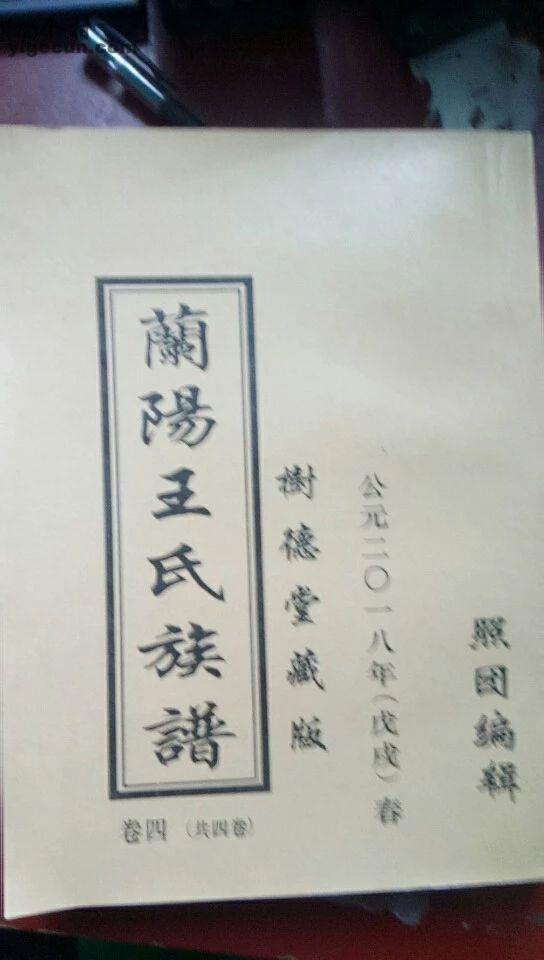 yigecun.com
照团编辑
公元二〇一八年(戊戌)春
樹德堂藏版
蘭陽王氏族譜
卷四 (共四卷)